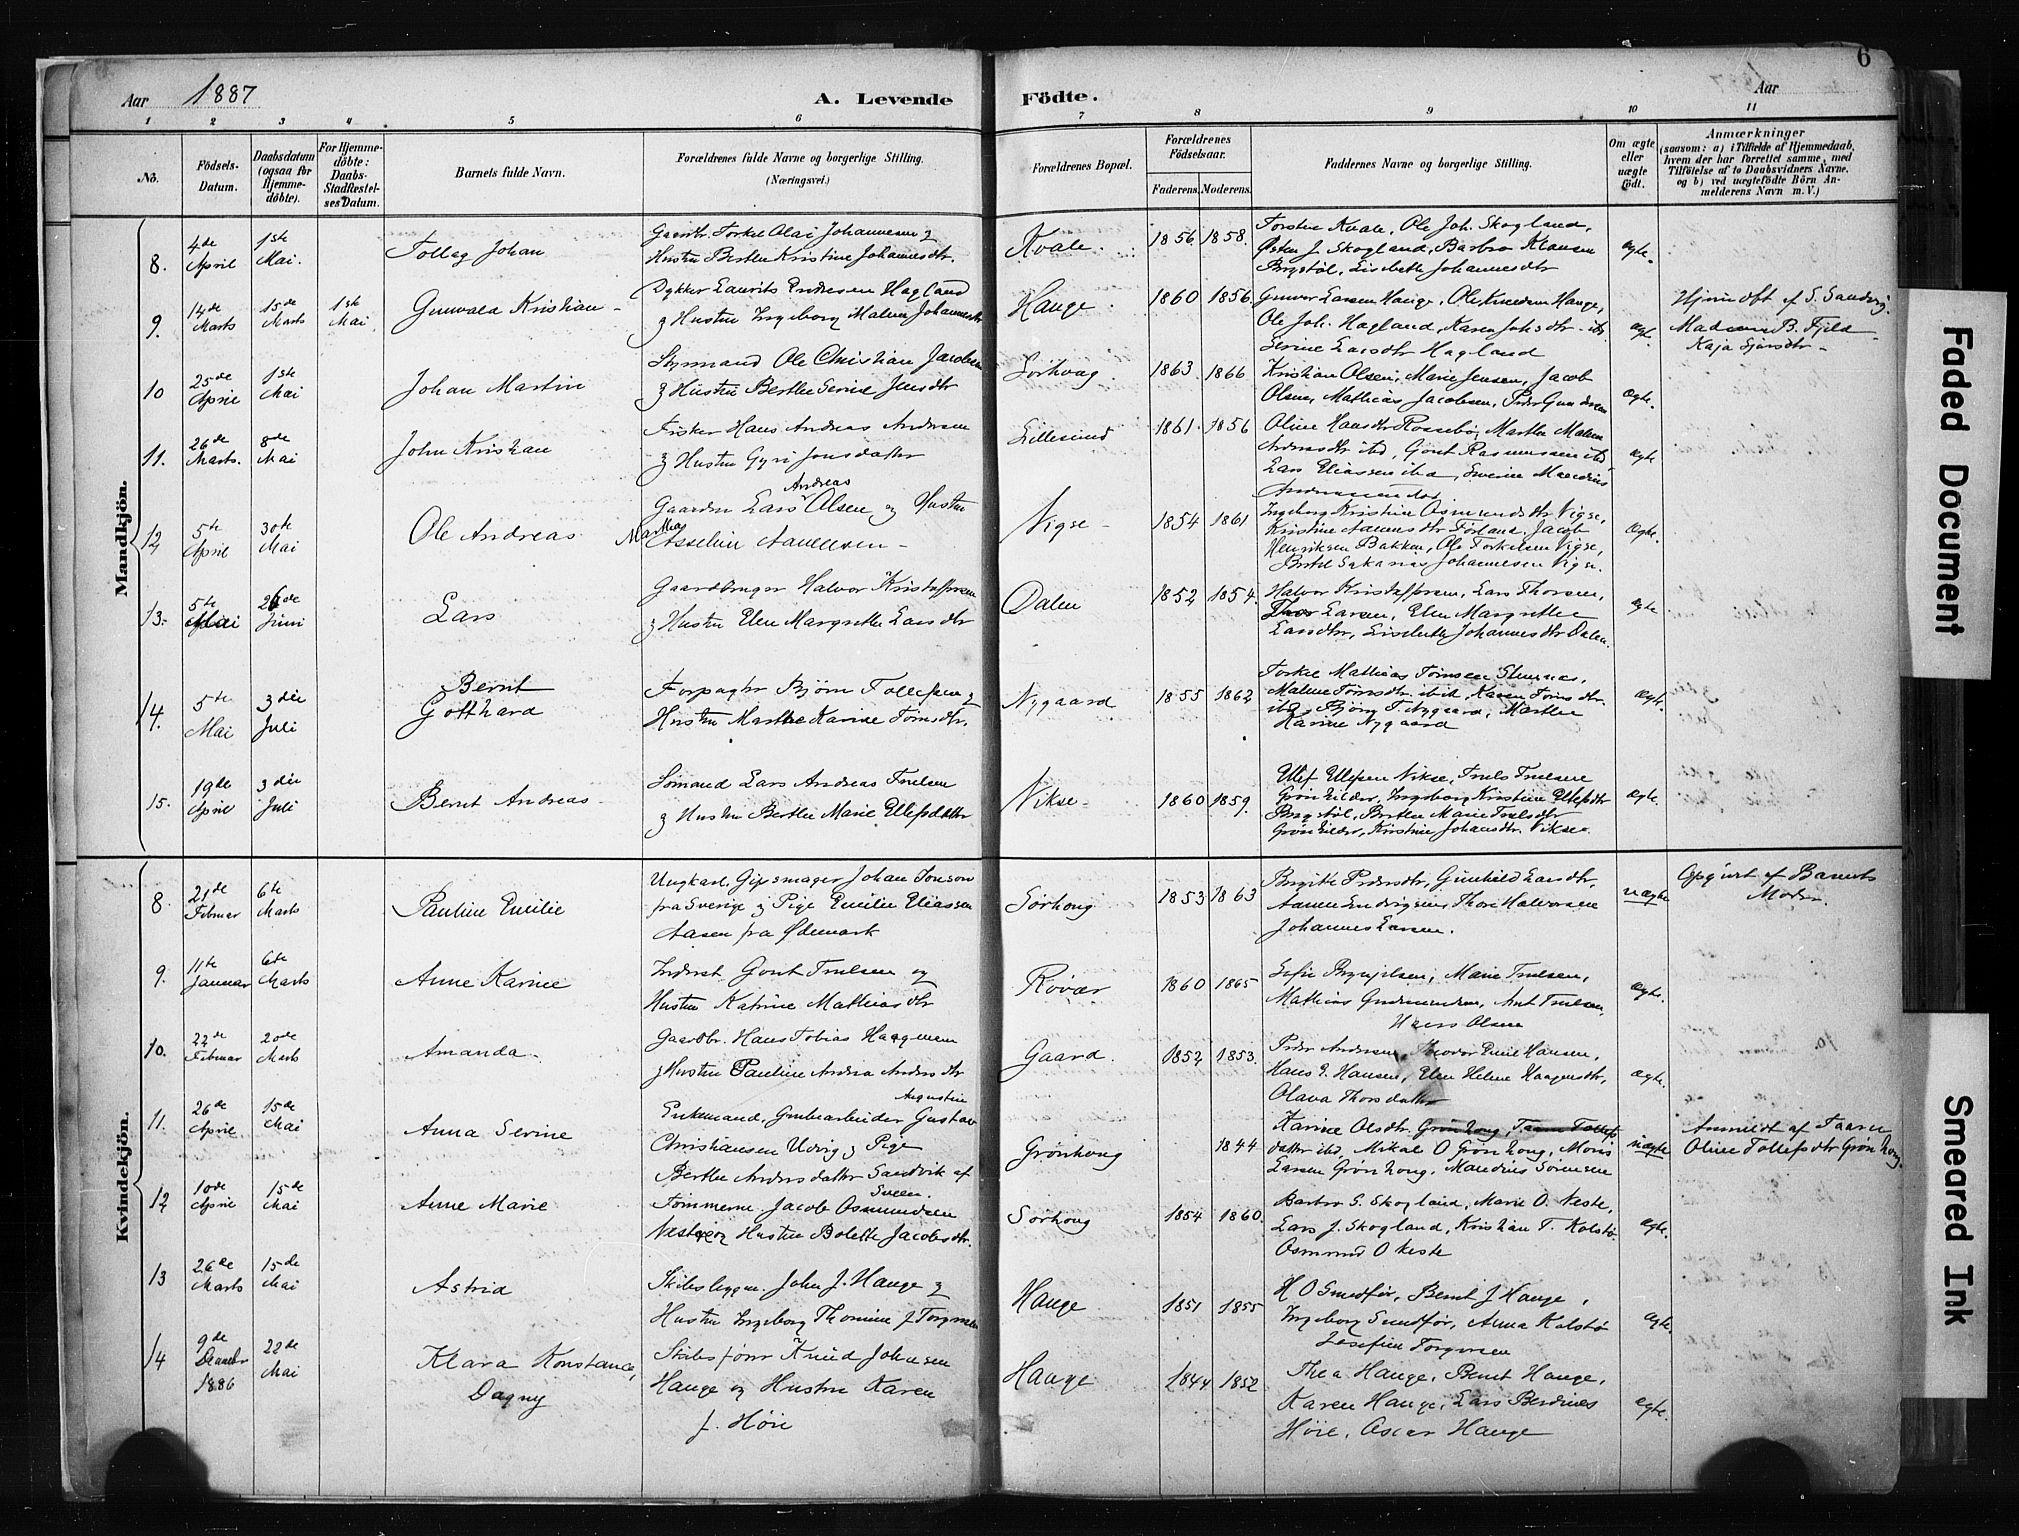 6
Aar 1887
A. Levende Födte.
Aar
1 2 3 4 5 6 7 8 9 10 11
No.
Födsels-
Datum.
Daabsdatum
(ogsaa for
Hjemme-
döbte).
For Hjemme-
döbte:
Daabs-
Stadfæstel-
ses Datum.
Barnets fulde Navn.
Forældrenes fulde Navne og borgerlige Stilling.
(Næringsvei.)
Forældrenes Bopæl.
Forældrenes
Födselsaar.
Faderens. Moderens.
Faddernes Navne og borgerlige Stilling.
Om ægte
eller
uægte
födt.
Anmærkninger
(saasom: a) i Tilfælde af Hjemmedaab,
hvem der har forrettet samme, med
Tilföielse af to Daabsvidners Navne.
og b) ved uægtefödte Börn An-
melderens Navn m. V.)
Mandkjön.
8. 4de April 1ste Mai. Tollag Johan
Gaardbr. Torkel Olai Johannesen &
Hustru Berthe Kristine Johannesdtr.
Kvale. 1856 1858.
Torsten Kvale, Ole Joh. Skogland,
Østen J. Skogland, Barbro Klausen
Brystøl, Lisbeth Johannesdtr
ægte.
9. 14de Marts 15de Marts 1ste Mai Gunvald Kristian
Dykker Laurits Endresen Hagland
& Hustru Ingeborg Malene Johannesdtr
Hauge 1860 1856.
Gunvor Larsen Hauge, Ole Knudsen Hauge,
Ole Joh. Hagland, Karen Johsdtr ibd
Serine Larsdtr Hagland
ægt.
Hjemdøbt af S. Sandvig.
Madam B. Fjeld
Kaja
10 25de April 1ste Mai Johan Martin
Styrmand Ole Christian Jacobsen
& Hustru Berthe Serine Jensdtr
Sørhoug 1863 1866
Kristian Olsen, Marie Jensen, Jacob
Olsen, Mathias Jacobsen, Peder Gundersen
Ægte.
11. 26de Marts. 8de Mai John Kristian
Fisker Hans Andreas Andersen
& Hustru Gyri Jonsdatter
Lillesund 1861 1856
Oline Hansdtr Rossebø, Marthe Malene
Andersdtr ibd, Gont Rasmussen ibd,
Lars Eliassen ibd,
ægte
12 5te April 30te Mai Ole Andreas
Andreas
Gaardm Lars Olsen og Hustru
Asseline
Vigse 1854 1861
Ingeborg Kristine Osmundsdtr Vigse,
Kristine Førland, Jacob
Henriksen Bakken, Ole Torkelsen Vigse,
Bertel Sakarias Johannesen Vigse.
Ægte.
13. 5te Mai 26de Juni Lars
Gaardbruger Halvor Kristoffersen
& Hustru Elen Margrethe Larsdtr
Dalen 1852 1854.
Halvor Kristoffersen, Lars Thorsen,
Thor Larsen, Elen Margrethe
Larsdtr, Liseberth Johannesdtr Dalen.
ægte
14. 5te Mai 3die Juli Bernt
Gotthard
Forpagtr Bjørn Tollefsen &
Hustru Marthe Karine Tørrisdtr.
Nygaard 1855 1862
Torkel Mathias
Malene ibid, Karen
ibd, Bjørn T. Nygaard, Marthe
Karine Nygaard
Ægte.
15. 19de April 3die Juli Bernt Andreas
Sømand Lars Andreas Truelsen
& Hustru Berthe Marie Ellefsdatter
Vikse 1860 1859.
Ellef Ellefsen Vikse, Truels Truelsen
Ingeborg Kristine Ellefsdtr
Brystøl, Berthe Marie Truelsdtr
Kristine Johansdtr. Vikse.
Ægte.
Kvindekjön.
8. 21de Februar 6te Marts Pauline Emilie
Ungkarl, Gipsmager Johan Jonson
fra Sverige & Pige Emilie Eliassen
Aasen fra Ødemark
Sørhoug 1853 1863
Birgitte Pedersdtr, Gunhild Larsdtr,
Thore Halvorsen
Johannes Larsen.
uægte
Opgivet af Barnets
Moder.
9. 11te Januar 6te Marts Anne Karine
Inderst Gont Truelsen og
Hustru Katrine Mathiasdtr
Røvær 1860 1865
Sofie Marie Truelsen,
Mathias Gudmundsen, Amt Truelsen,
Hans Olsen
ægte.
10. 22de Februar 20de Marts Amanda
Gaardbr. Hans Tobias Haagensen
& Hustru Pauline Andrea Andersdtr
Gaard. 1852 1853.
Peder Andersen, Theodor Emil Hansen,
Hans E. Hansen, Elen Helene Haagensdtr,
Olava Thorsdatter
ægte.
11. 26de April 15de Mai Anna Serine
Augustin
Enkemand, Grubearbeider Gustav
Christiansen Udvig & Pige
Berthe Andersdatter Sandvik af
Sveen.
Grønhoug 1844
Karine Olsdtr Grønhoug,
datter ibd, Mikal O Grønhoug, Mons
Larsen Grønhoug, Maurius Sørensen
uægte
Anmeldt af
Oline Tollefsdtr Grønhoug.
12 10de April 15de Mai Anne Marie
Tømmerm. Jacob Osmundsen
Neste og Hustru Bolette Jacobsdtr.
Sørhoug 1854 1860.
Barbro S. Skogland, Marie O. Neste,
Lars J. Skogland, Kristian T. Kolstø
Osmund O Neste
Ægte.
13 26de Marts 15de Mai Astrid
Skibsbygger. John J. Hauge &
Hustru Ingeborg Thomine f Torgersen
Hauge 1851 1855
H O Smedfør, Bernt J Hauge,
Ingeborg Smedfør, Anna Kolstø
Josefine Torgersen
Ægte.
14 9de Decembr 1886 22de Mai Klara Konstance,
Dagny
Skibsfører Knud Johnsen
Hauge og Hustru Karen
f. Høie
Hauge 1844 1852
Thea Hauge, Bernt Hauge,
Karen Hauge, Lars Berdines
Høie, Oscar Hauge
ægte.
Faded Document
Smeared Ink